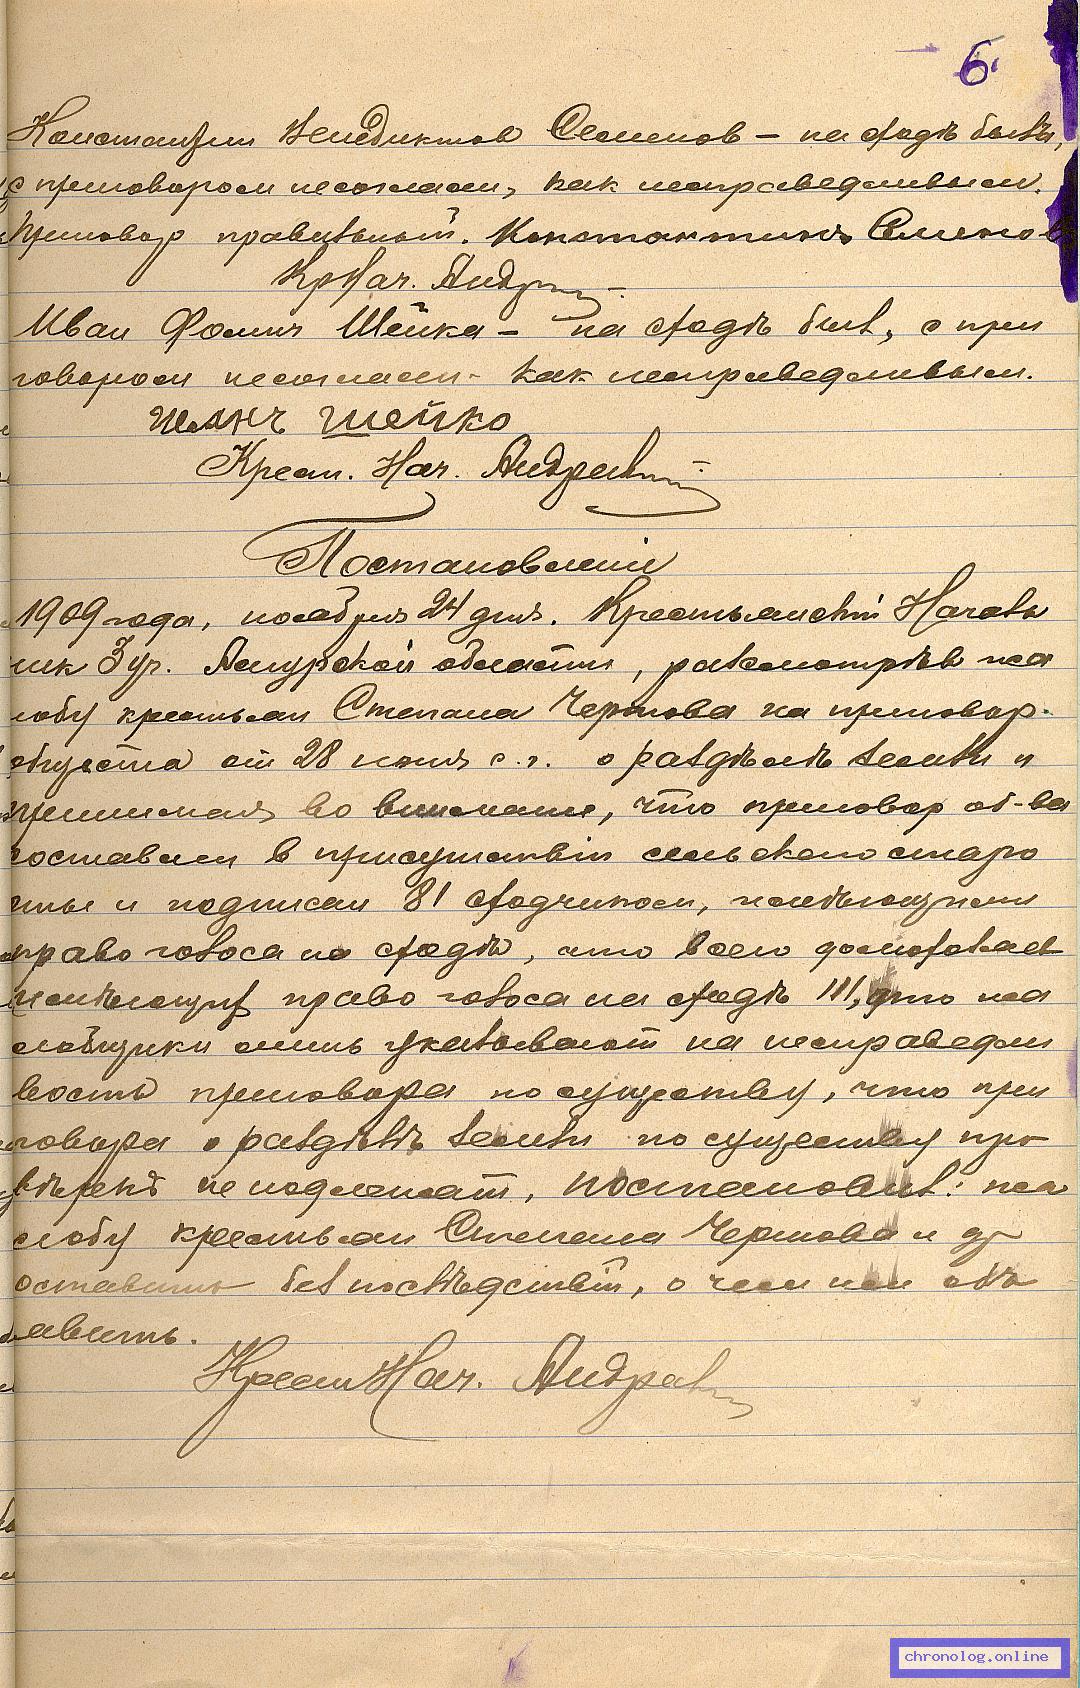 6.
Константин Бенедиктов Семенов – на сходѣ былъ,
с приговором несогласен, как несправедливым.
Приговор правильный. Константинъ Семенов
Кр Нач. Андр
Иван Фомич Шейка – на сходѣ был, с при
говором несогласен – как несправедливым.
Иванъ Шейко
Крест. Нач. Андрев
Постановленiе
1909 года, ноября 24 дня. Крестьянскiй Началь
ник 3 уч. Амурской области, разсмотрѣв жа
лобу крестьян Степана Чернова на приговор
общества от 28 июня с. г. о раздѣлѣ земли и
принимая во внимание, что приговор об-ва
составлен в присутствiи сельского старо
сты и подписан 81 сходчиком, имѣющими
право голоса на сходѣ, что всего домохозяев
имѣющих право голоса на сходѣ 111, что жа
лобщики лишь указывают на несправедли
вость приговора по существу, что при
говора о раздѣлѣ земли по существу про
вѣркѣ не подлежат, постановил: жа
лобу крестьян Степана Чернова и др
оставить без послѣдствiй, о чем им объ
явить.
Крест Нач. Андрев
chronolog.online